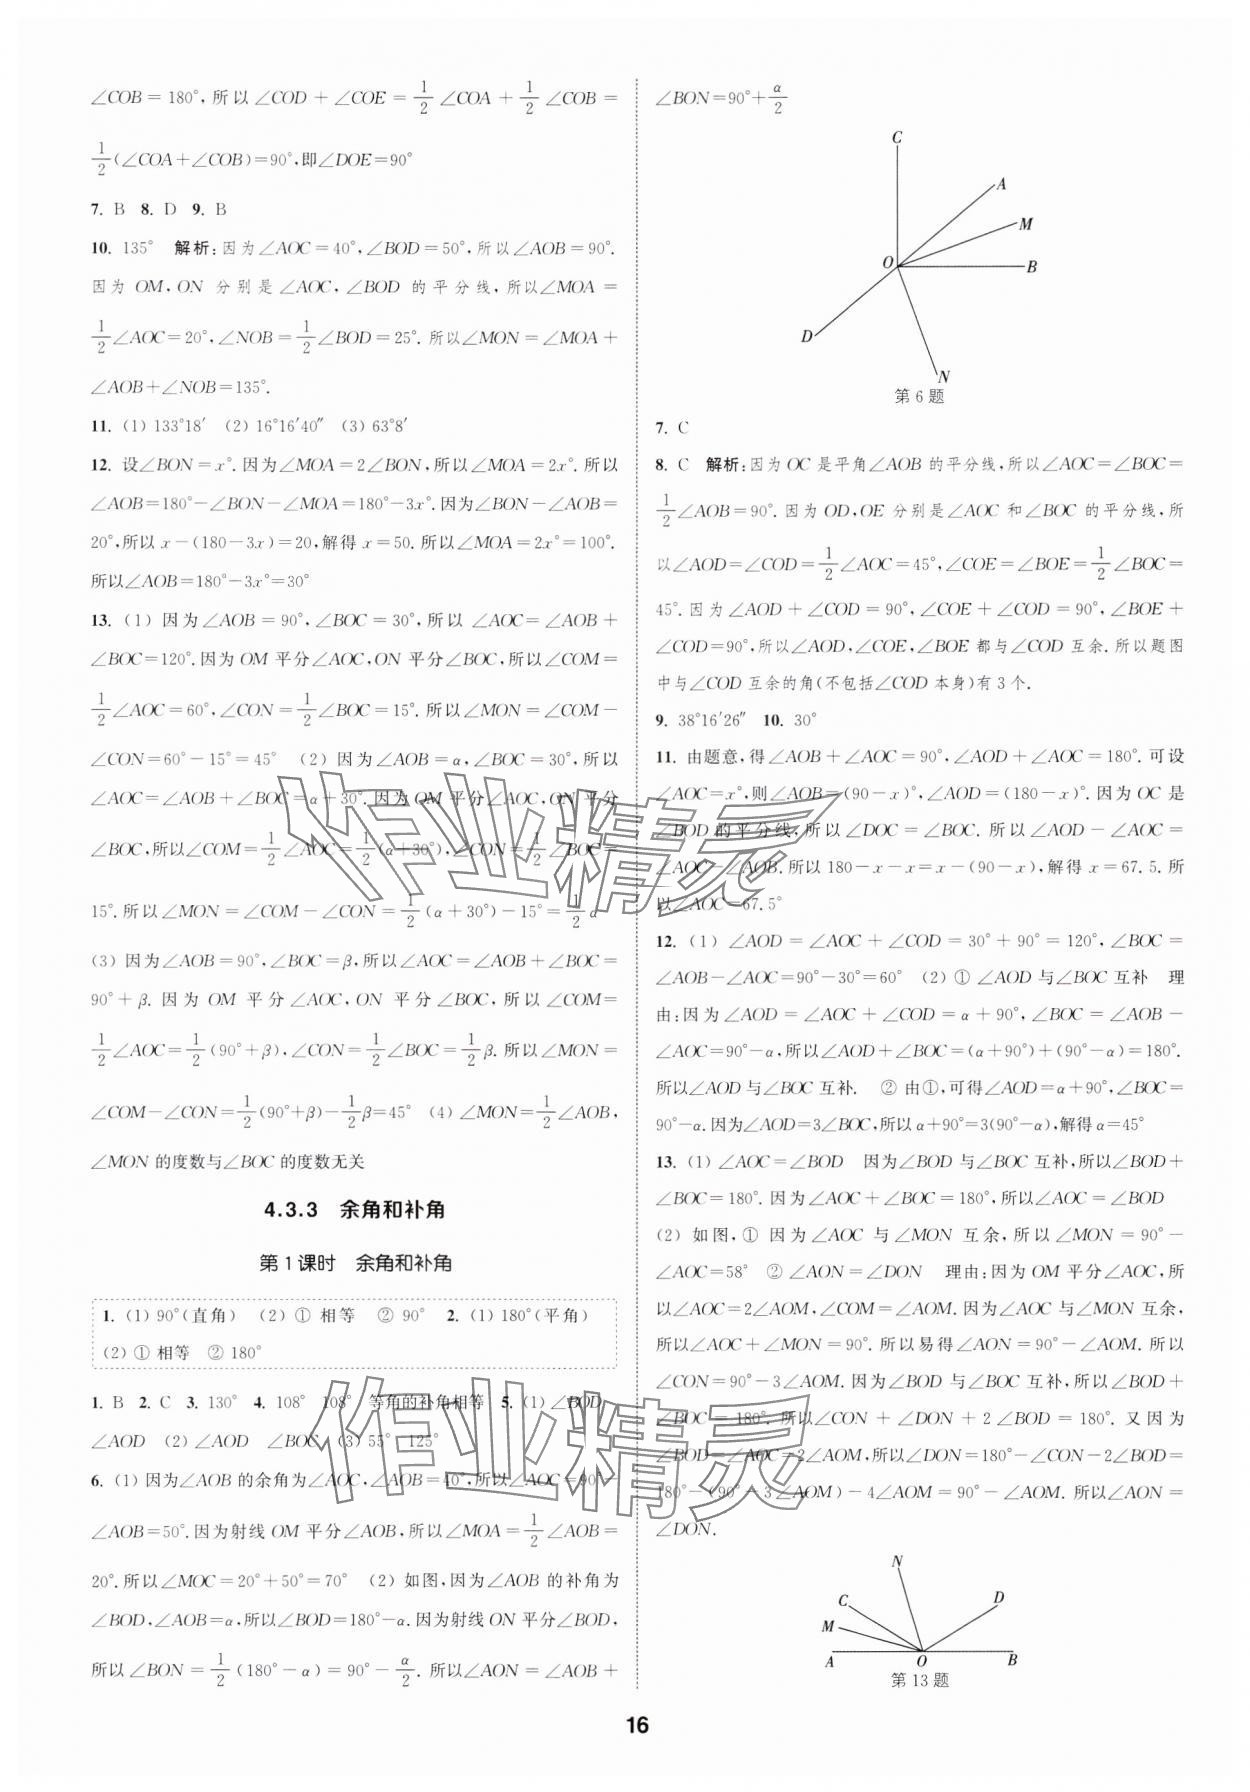 ∠COB=180°,所以∠COD+∠COE=1/2∠COA+1/2∠COB=
1/2(∠COA+∠COB)=90°,即∠DOE=90°
7. B 8. D 9. B
10. 135° 解析:因为∠AOC=40°,∠BOD=50°,所以∠AOB=90°.
因为 OM,ON 分别是∠AOC,∠BOD 的平分线,所以∠MOA=
1/2∠AOC=20°,∠NOB=1/2∠BOD=25°.所以∠MON=∠MOA+
∠AOB+∠NOB=135°.
11. (1) 133°18′ (2) 16°16′40″ (3) 63°8′
12. 设∠BON=x°.因为∠MOA=2∠BON,所以∠MOA=2x°.所以
∠AOB=180°-∠BON-∠MOA=180°-3x°.因为∠BON-∠AOB=
20°,所以 x-(180-3x)=20,解得 x=50.所以∠MOA=2x°=100°.
所以∠AOB=180°-3x°=30°
13. (1) 因为∠AOB=90°,∠BOC=30°,所以∠AOC=∠AOB+
∠BOC=120°.因为 OM 平分∠AOC,ON 平分∠BOC,所以∠COM=
1/2∠AOC=60°,∠CON=1/2∠BOC=15°.所以∠MON=∠COM-
∠CON=60°-15°=45° (2) 因为∠AOB=α,∠BOC=30°,所以
∠AOC=∠AOB+∠BOC=α+30°.因为 OM 平分∠AOC,ON 平分
∠BOC,所以∠COM=1/2∠AOC=1/2(α+30°),∠CON=1/2∠BOC=
15°.所以∠MON=∠COM-∠CON=1/2(α+30°)-15°=1/2α
(3) 因为∠AOB=90°,∠BOC=β,所以∠AOC=∠AOB+∠BOC=
90°+β.因为 OM 平分∠AOC,ON 平分∠BOC,所以∠COM=
1/2∠AOC=1/2(90°+β),∠CON=1/2∠BOC=1/2β.所以∠MON=
∠COM-∠CON=1/2(90°+β)-1/2β=45° (4) ∠MON=1/2∠AOB,
∠MON 的度数与∠BOC 的度数无关
4.3.3 余角和补角
第1课时 余角和补角
1. (1) 90°(直角) (2) ① 相等 ② 90° 2. (1) 180°(平角)
(2) ① 相等 ② 180°
1. B 2. C 3. 130° 4. 108° 108° 等角的补角相等 5. (1) ∠BOD
∠AOD (2) ∠AOD ∠BOC (3) 55° 125°
6. (1) 因为∠AOB 的余角为∠AOC,∠AOB=40°,所以∠AOC=90°-
∠AOB=50°.因为射线 OM 平分∠AOB,所以∠MOA=1/2∠AOB=
20°.所以∠MOC=20°+50°=70° (2) 如图,因为∠AOB 的补角为
∠BOD,∠AOB=α,所以∠BOD=180°-α.因为射线 ON 平分∠BOD,
所以∠BON=1/2(180°-α)=90°-α/2.所以∠AON=∠AOB+
∠BON=90°+α/2
C
A
M
O
B
D
N
第6题
7. C
8. C 解析:因为 OC 是平角∠AOB 的平分线,所以∠AOC=∠BOC=
1/2∠AOB=90°.因为 OD,OE 分别是∠AOC 和∠BOC 的平分线,所
以∠AOD=∠COD=1/2∠AOC=45°,∠COE=∠BOE=1/2∠BOC=
45°.因为∠AOD+∠COD=90°,∠COE+∠COD=90°,∠BOE+
∠COD=90°,所以∠AOD,∠COE,∠BOE 都与∠COD 互余.所以题图
中与∠COD 互余的角(不包括∠COD 本身)有3个.
9. 38°16′26″ 10. 30°
11. 由题意,得∠AOB+∠AOC=90°,∠AOD+∠AOC=180°.可设
∠AOC=x°,则∠AOB=(90-x)°,∠AOD=(180-x)°.因为 OC 是
∠BOD 的平分线,所以∠DOC=∠BOC.所以∠AOD-∠AOC=
∠AOC-∠AOB.所以 180-x-x=x-(90-x),解得 x=67.5.所
以∠AOC=67.5°
12. (1) ∠AOD=∠AOC+∠COD=30°+90°=120°,∠BOC=
∠AOB-∠AOC=90°-30°=60° (2) ① ∠AOD 与∠BOC 互补 理
由:因为∠AOD=∠AOC+∠COD=α+90°,∠BOC=∠AOB-
∠AOC=90°-α,所以∠AOD+∠BOC=(α+90°)+(90°-α)=180°.
所以∠AOD 与∠BOC 互补. ② 由①,可得∠AOD=α+90°,∠BOC=
90°-α.因为∠AOD=3∠BOC,所以α+90°=3(90°-α),解得α=45°
13. (1) ∠AOC=∠BOD 因为∠BOD 与∠BOC 互补,所以∠BOD+
∠BOC=180°.因为∠AOC+∠BOC=180°,所以∠AOC=∠BOD
(2) 如图,① 因为∠AOC 与∠MON 互余,所以∠MON=90°-
∠AOC=58° ② ∠AON=∠DON 理由:因为 OM 平分∠AOC,所
以∠AOC=2∠AOM,∠COM=∠AOM.因为∠AOC 与∠MON 互余,
所以∠AOC+∠MON=90°.所以易得∠AON=90°-∠AOM.所以
∠CON=90°-3∠AOM.因为∠BOD 与∠BOC 互补,所以∠BOD+
∠BOC=180°.所以∠CON+∠DON+2∠BOD=180°.又因为
∠BOD=∠AOC=2∠AOM,所以∠DON=180°-∠CON-2∠BOD=
180°-(90°-3∠AOM)-4∠AOM=90°-∠AOM.所以∠AON=
∠DON.
N
C
D
M
A
O
B
第13题
16
作业精灵
作业精灵